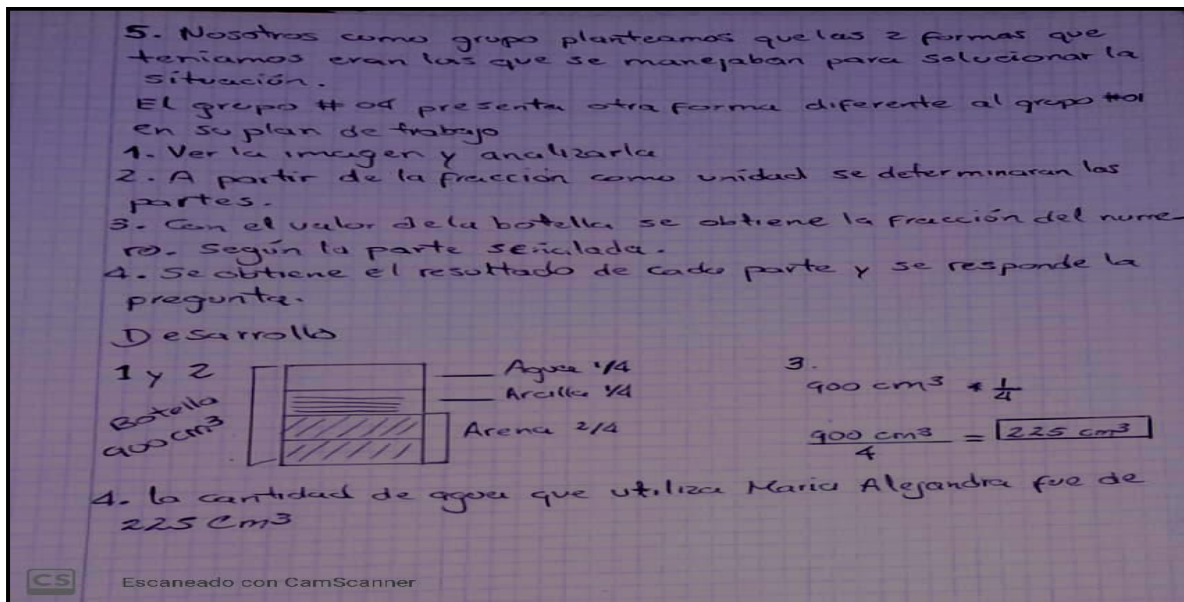 5. Nosotros como grupo planteamos que las 2 formas que
teniamos eran las que se manejaban para solucionar la
situación.
El grupo # 04 presenta otra forma diferente al grupo #01
en su plan de trabajo
1. Ver la imagen y analizarla
2. A partir de la fracción como unidad se determinaran las
partes.
3. Con el valor de la botella se obtiene la fracción del nume-
ro. Según la parte señalada.
4. Se obtiene el resultado de cada parte y se responde la
pregunta.
Desarrollo
1 y 2
Botella
900 cm³
Agua 1/4
Arcilla 1/4
Arena 2/4
3.
900 cm³ * 1/4
900 cm³ / 4 = 225 cm³
4. la cantidad de agua que utiliza Maria Alejandra fue de
225 Cm³
CS Escaneado con CamScanner